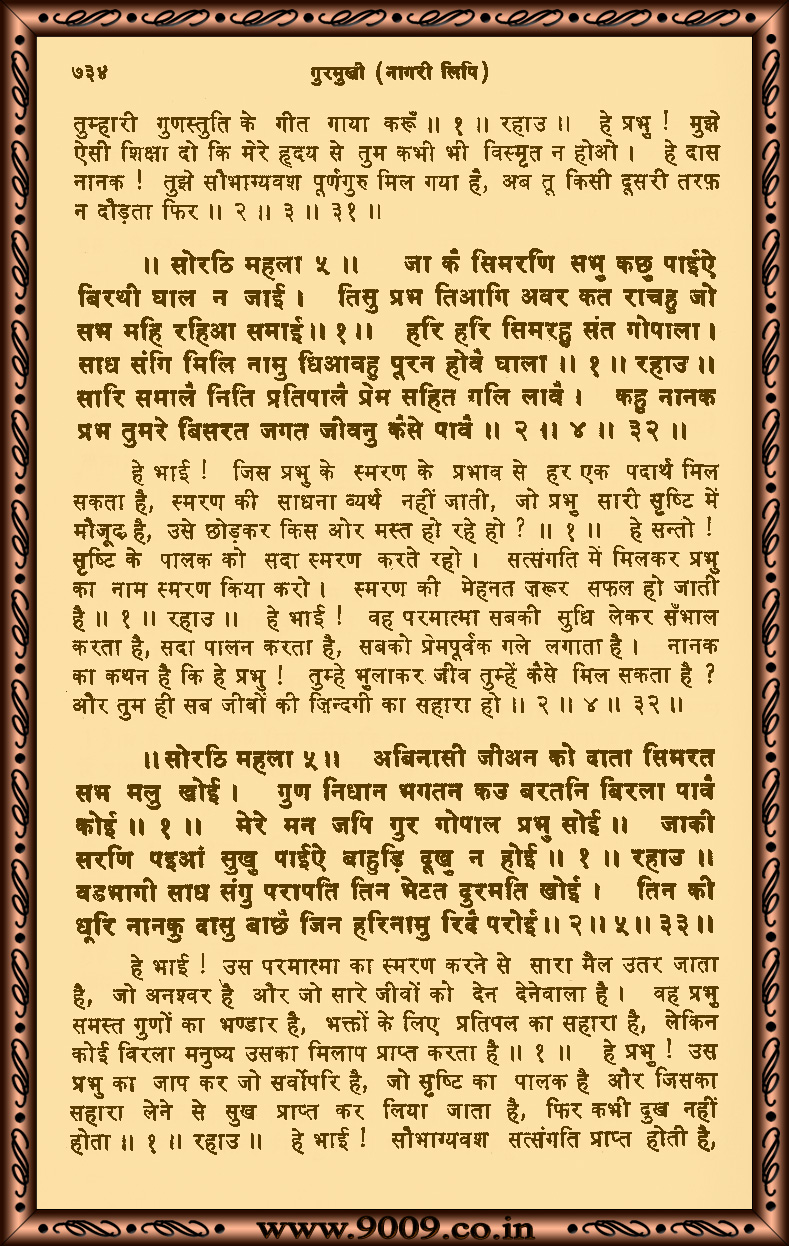 ७३४ गुरमुखी (नागरी लिपि)
तुम्हारी गुणस्तुति के गीत गाया करूँ ॥ १ ॥ रहाउ ॥ हे प्रभु ! मुझे
ऐसी शिक्षा दो कि मेरे हृदय से तुम कभी भी विस्मृत न होओ । हे दास
नानक ! तुझे सौभाग्यवश पूर्णगुरु मिल गया है, अब तू किसी दूसरी तरफ़
न दौड़ता फिर ॥ २ ॥ ३ ॥ ३१ ॥
॥ सोरठि महला ५ ॥ जा कै सिमरणि सभु कछु पाईऐ
बिरथी घाल न जाई । तिसु प्रभ तिआगि अवर कत राचहु जो
सभ महि रहिआ समाई ॥ १ ॥ हरि हरि सिमरहु संत गोपाला ।
साध संगि मिलि नामु धिआवहु पूरन होवै घाला ॥ १ ॥ रहाउ ॥
सारि समालै निति प्रतिपालै प्रेम सहित गलि लावै । कहु नानक
प्रभ तुमरे बिसरत जगत जीवनु कैसे पावै ॥ २ ॥ ४ ॥ ३२ ॥
हे भाई ! जिस प्रभु के स्मरण के प्रभाव से हर एक पदार्थ मिल
सकता है, स्मरण की साधना व्यर्थ नहीं जाती, जो प्रभु सारी सृष्टि में
मौजूद है, उसे छोड़कर किस ओर मस्त हो रहे हो ? ॥ १ ॥ हे सन्तो !
सृष्टि के पालक को सदा स्मरण करते रहो । सत्संगति में मिलकर प्रभु
का नाम स्मरण किया करो । स्मरण की मेहनत ज़रूर सफल हो जाती
है ॥ १ ॥ रहाउ ॥ हे भाई ! वह परमात्मा सबकी सुधि लेकर सँभाल
करता है, सदा पालन करता है, सबको प्रेमपूर्वक गले लगाता है । नानक
का कथन है कि हे प्रभु ! तुम्हे भुलाकर जीव तुम्हें कैसे मिल सकता है ?
और तुम ही सब जीवों की ज़िन्दगी का सहारा हो ॥ २ ॥ ४ ॥ ३२ ॥
॥ सोरठि महला ५ ॥ अबिनासी जीअन को दाता सिमरत
सभ मलु खोई । गुण निधान भगतन कउ बरतनि बिरला पावै
कोई ॥ १ ॥ मेरे मन जपि गुर गोपाल प्रभु सोई ॥ जाकी
सरणि पइआं सुखु पाईऐ बाहुड़ि दूखु न होई ॥ १ ॥ रहाउ ॥
वडभागी साध संगु परापति तिन भेटत दुरमति खोई । तिन की
धूरि नानकु दासु बाछै जिन हरिनामु रिदै परोई ॥ २ ॥ ५ ॥ ३३ ॥
हे भाई ! उस परमात्मा का स्मरण करने से सारा मैल उतर जाता
है, जो अनश्वर है और जो सारे जीवों को देन देनेवाला है । वह प्रभु
समस्त गुणों का भण्डार है, भक्तों के लिए प्रतिपल का सहारा है, लेकिन
कोई विरला मनुष्य उसका मिलाप प्राप्त करता है ॥ १ ॥ हे प्रभु ! उस
प्रभु का जाप कर जो सर्वोपरि है, जो सृष्टि का पालक है और जिसका
सहारा लेने से सुख प्राप्त कर लिया जाता है, फिर कभी दुख नहीं
होता ॥ १ ॥ रहाउ ॥ हे भाई ! सौभाग्यवश सत्संगति प्राप्त होती है,
www.9009.co.in